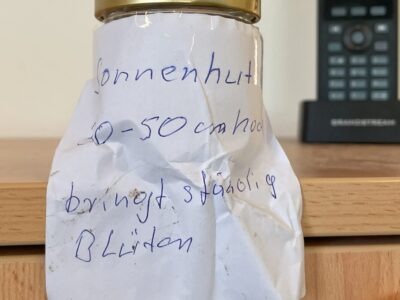 Sonnenhut
-50 cm hoc
bringt ständig
Blüten
GRANDSTREAM